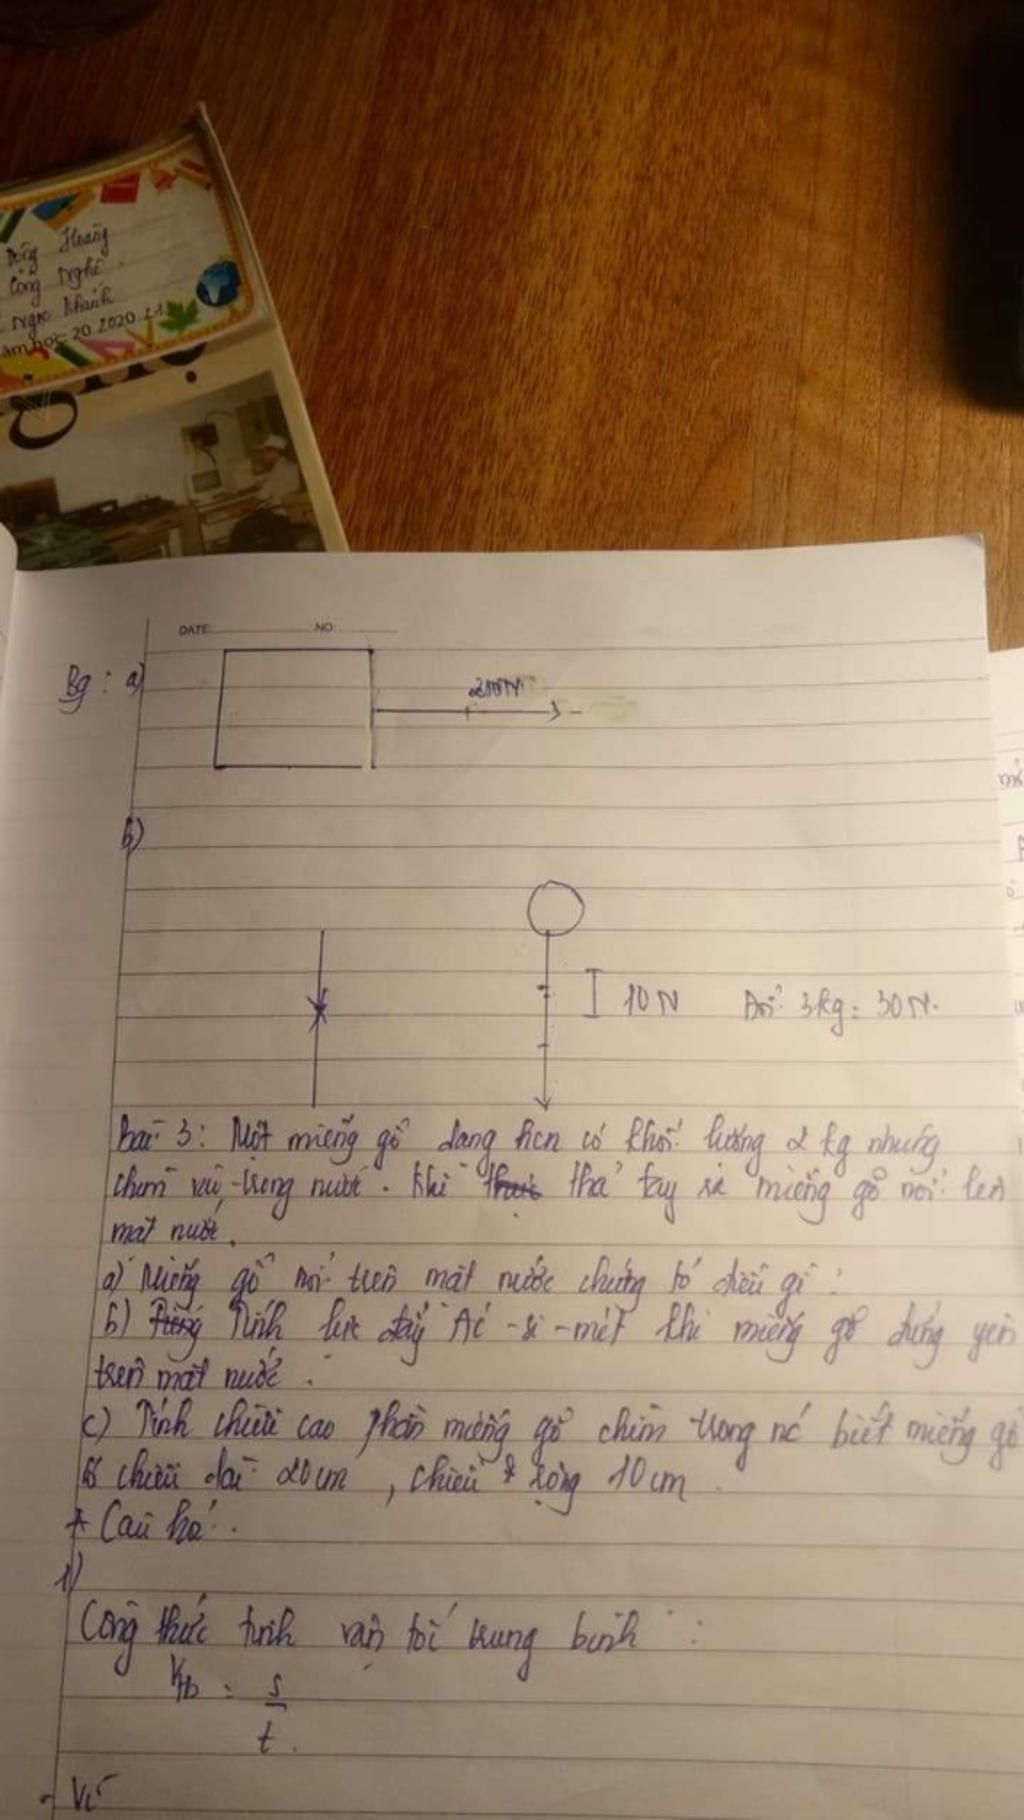 Đông Hoàng
Công Nghệ
Ngọc Khánh
năm học: 20 2020 21
DATE: NO:
Bg: a)
b)
10N Đổi 3kg = 30N.
Bài 3: Một miếng gỗ dạng hcn có khối lượng 2 kg nhúng
chìm vào trong nước. Khi thả tay ra miếng gỗ nổi lên
mặt nước.
a) Miếng gỗ nổi trên mặt nước chứng tỏ điều gì?
b) Tính lực đẩy Ác-si-mét khi miếng gỗ đứng yên
trên mặt nước.
c) Tính chiều cao phần miếng gỗ chìm trong nc biết miếng gỗ
chiều dài 20cm, chiều rộng 10cm.
* Câu hỏi.
1)
Công thức tính vận tốc trung bình:
Vtb = s
t.